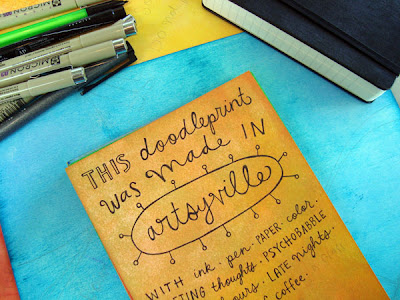 THIS doodleprint
was made IN
artsyville
WITH ink. pen. PAPER. color.
thoughts. PSYCHOBABBLE
LATE nights.
coffee.
MICRON
MICRON